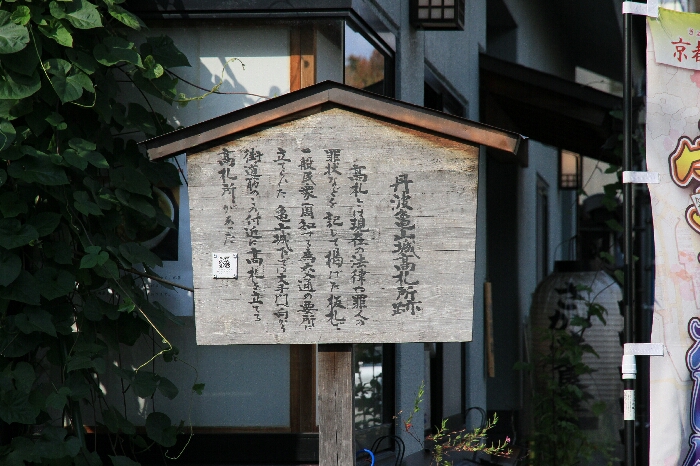 丹波亀山城高札所跡
高札とは現在の法律や罪人の
罪状などを記して掲げた板札で
一般民衆に周知させる為交通の要所に
立てられた 亀山城下では大手門に向かう
街道筋のこの付近に高札を立てる
高札所があった
京都